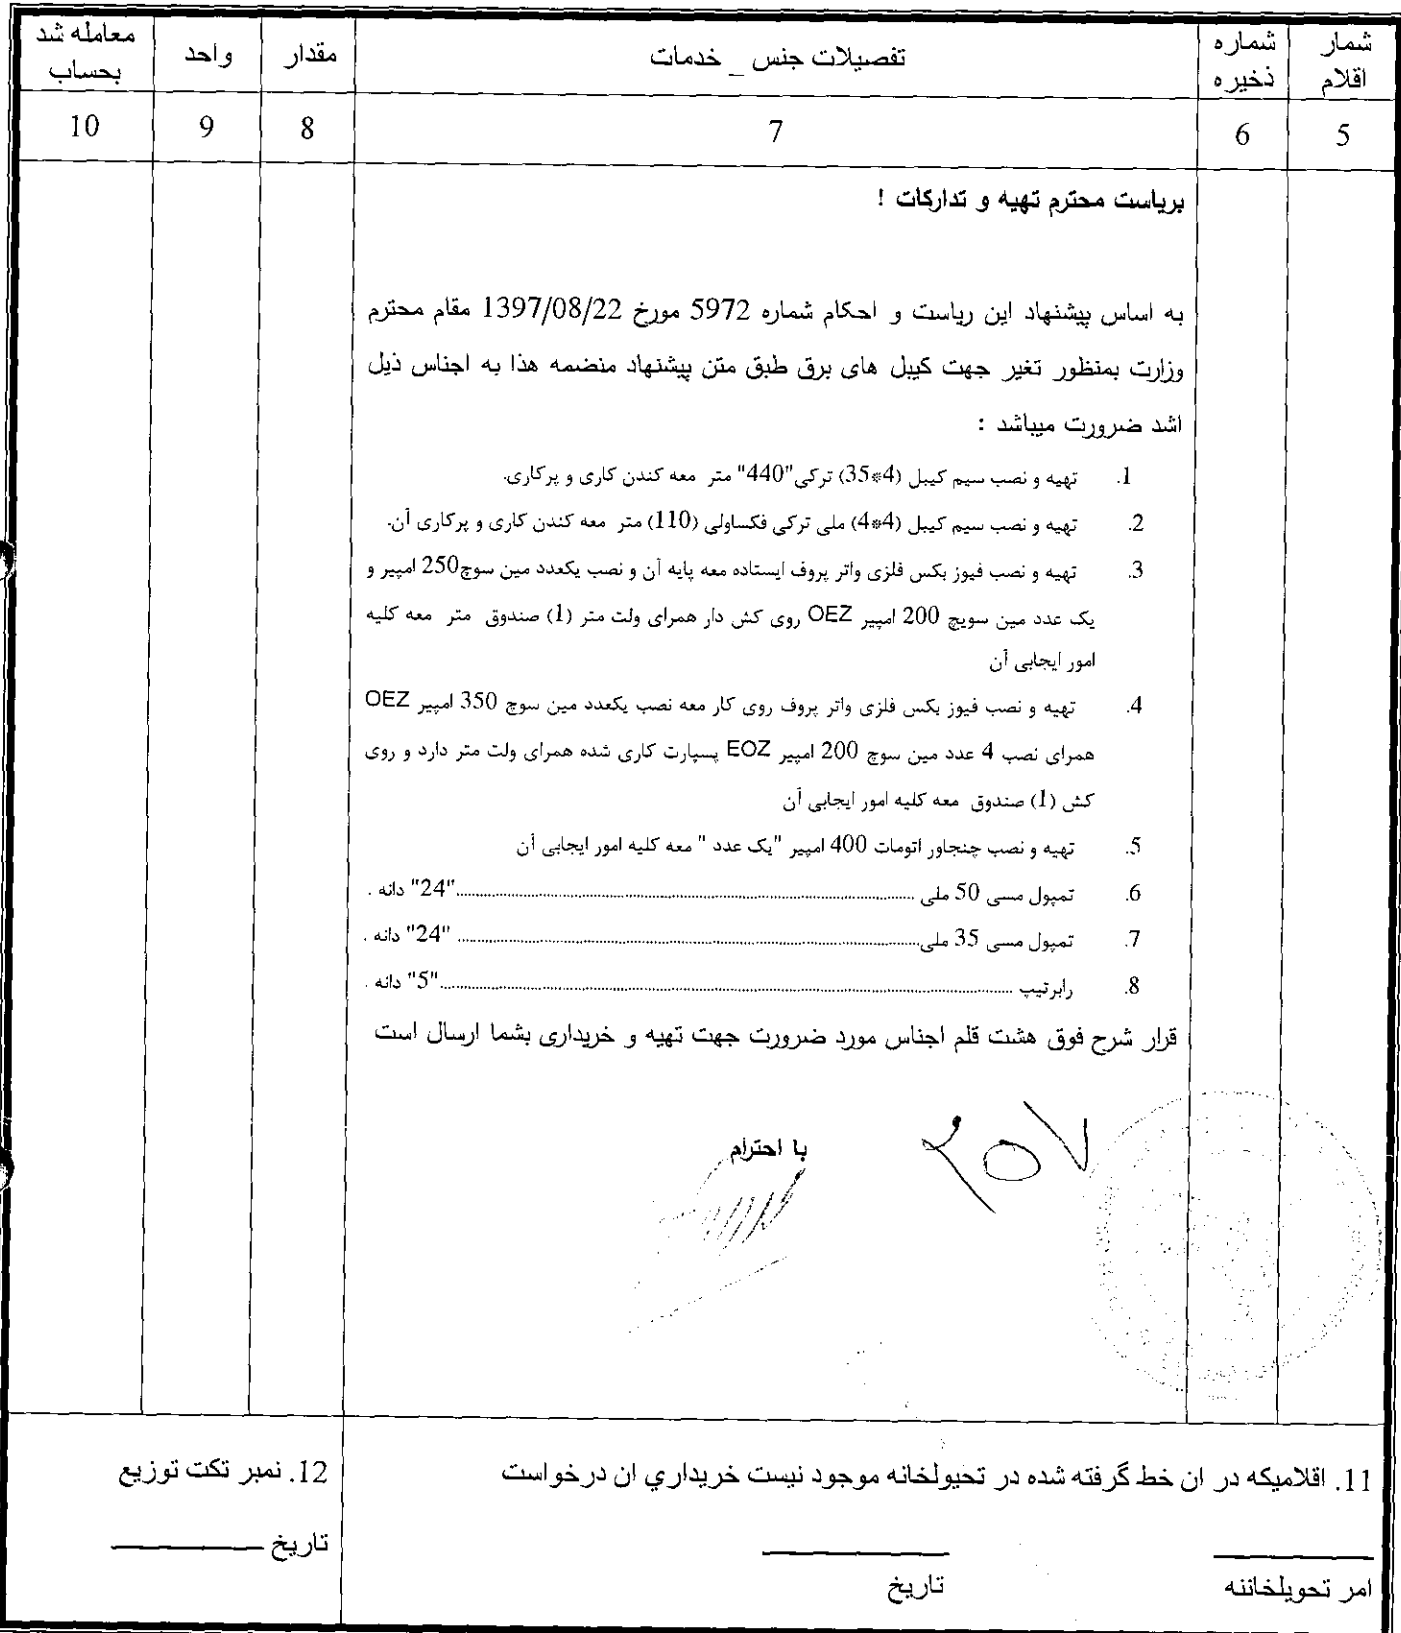 شمار اقلام
شماره ذخیره
تفصیلات جنس _ خدمات
مقدار
واحد
معامله شد بحساب
5
6
7
8
9
10
بریاست محترم تهیه و تدارکات !
به اساس پیشنهاد این ریاست و احکام شماره 5972 مورخ 1397/08/22 مقام محترم
وزارت بمنظور تغیر جهت کیبل های برق طبق متن پیشنهاد منضمه هذا به اجناس ذیل
اشد ضرورت میباشد :
1. تهیه و نصب سیم کیبل (4*35) ترکی"440" متر معه کندن کاری و پرکاری.
2. تهیه و نصب سیم کیبل (4*4) ملی ترکی فکساولی (110) متر معه کندن کاری و پرکاری آن.
3. تهیه و نصب فیوز بکس فلزی واتر پروف ایستاده معه پایه آن و نصب یکعدد مین سوچ250 امپیر و
یک عدد مین سویچ 200 امپیر OEZ روی کش دار همرای ولت متر (1) صندوق متر معه کلیه
امور ایجابی آن
4. تهیه و نصب فیوز بکس فلزی واتر پروف روی کار معه نصب یکعدد مین سوچ 350 امپیر OEZ
همرای نصب 4 عدد مین سوچ 200 امپیر EOZ پسپارت کاری شده همرای ولت متر دارد و روی
کش (1) صندوق معه کلیه امور ایجابی آن
5. تهیه و نصب چنجاور اتومات 400 امپیر "یک عدد " معه کلیه امور ایجابی آن
6. تمپول مسی 50 ملی ..........."24" دانه .
7. تمپول مسی 35 ملی........... "24" دانه .
8. رابرتیپ ..........."5" دانه .
قرار شرح فوق هشت قلم اجناس مورد ضرورت جهت تهیه و خریداری بشما ارسال است
با احترام
11. اقلامیکه در ان خط گرفته شده در تحیولخانه موجود نیست خریداري ان درخواست
12. نمبر تکت توزیع
تاریخ
امر تحویلخاننه
تاریخ